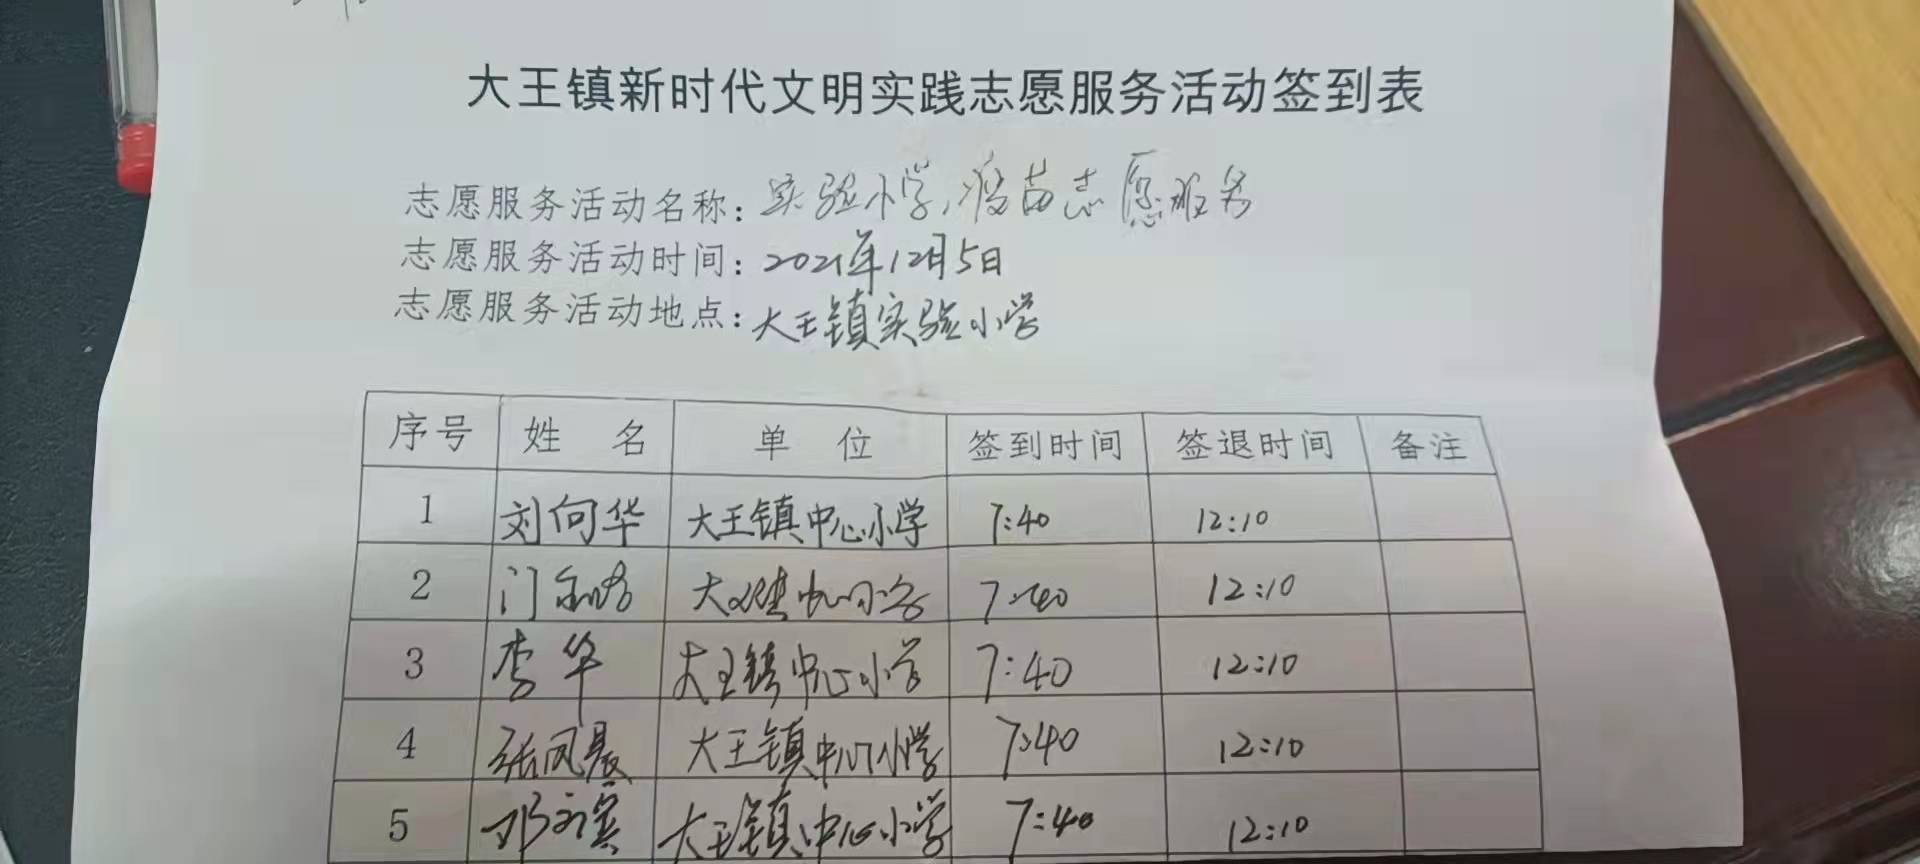 大王镇新时代文明实践志愿服务活动签到表
志愿服务活动名称：实验小学，疫苗志愿服务
志愿服务活动时间：2021年12月5日
志愿服务活动地点：大王镇实验小学
序号 姓名 单位 签到时间 签退时间 备注
1 刘向华 大王镇中心小学 7:40 12:10
2 门 大王镇中心小学 7:40 12:10
3 李华 大王镇中心小学 7:40 12:10
4 张凤晨 大王镇中心小学 7:40 12:10
5 邓 大王镇中心小学 7:40 12:10